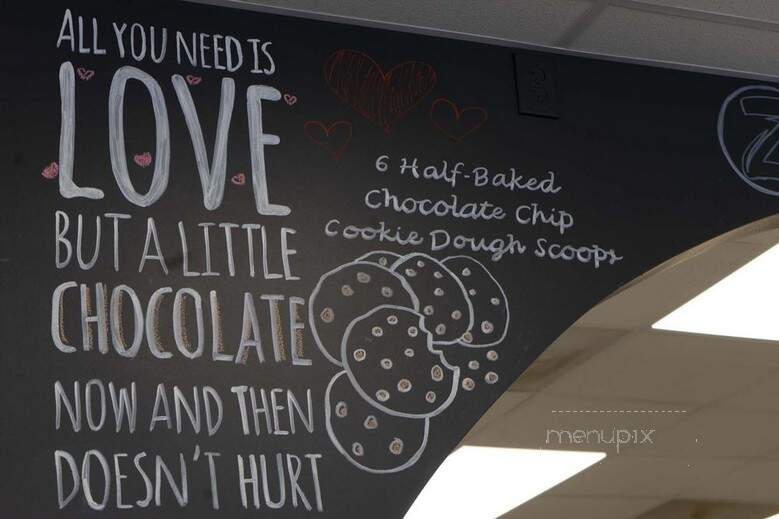 ALL YOU NEED IS
LOVE
BUT A LITTLE
CHOCOLATE
NOW AND THEN
DOESN'T HURT
6 Half-Baked
Chocolate Chip
Cookie Dough Scoops
menupix